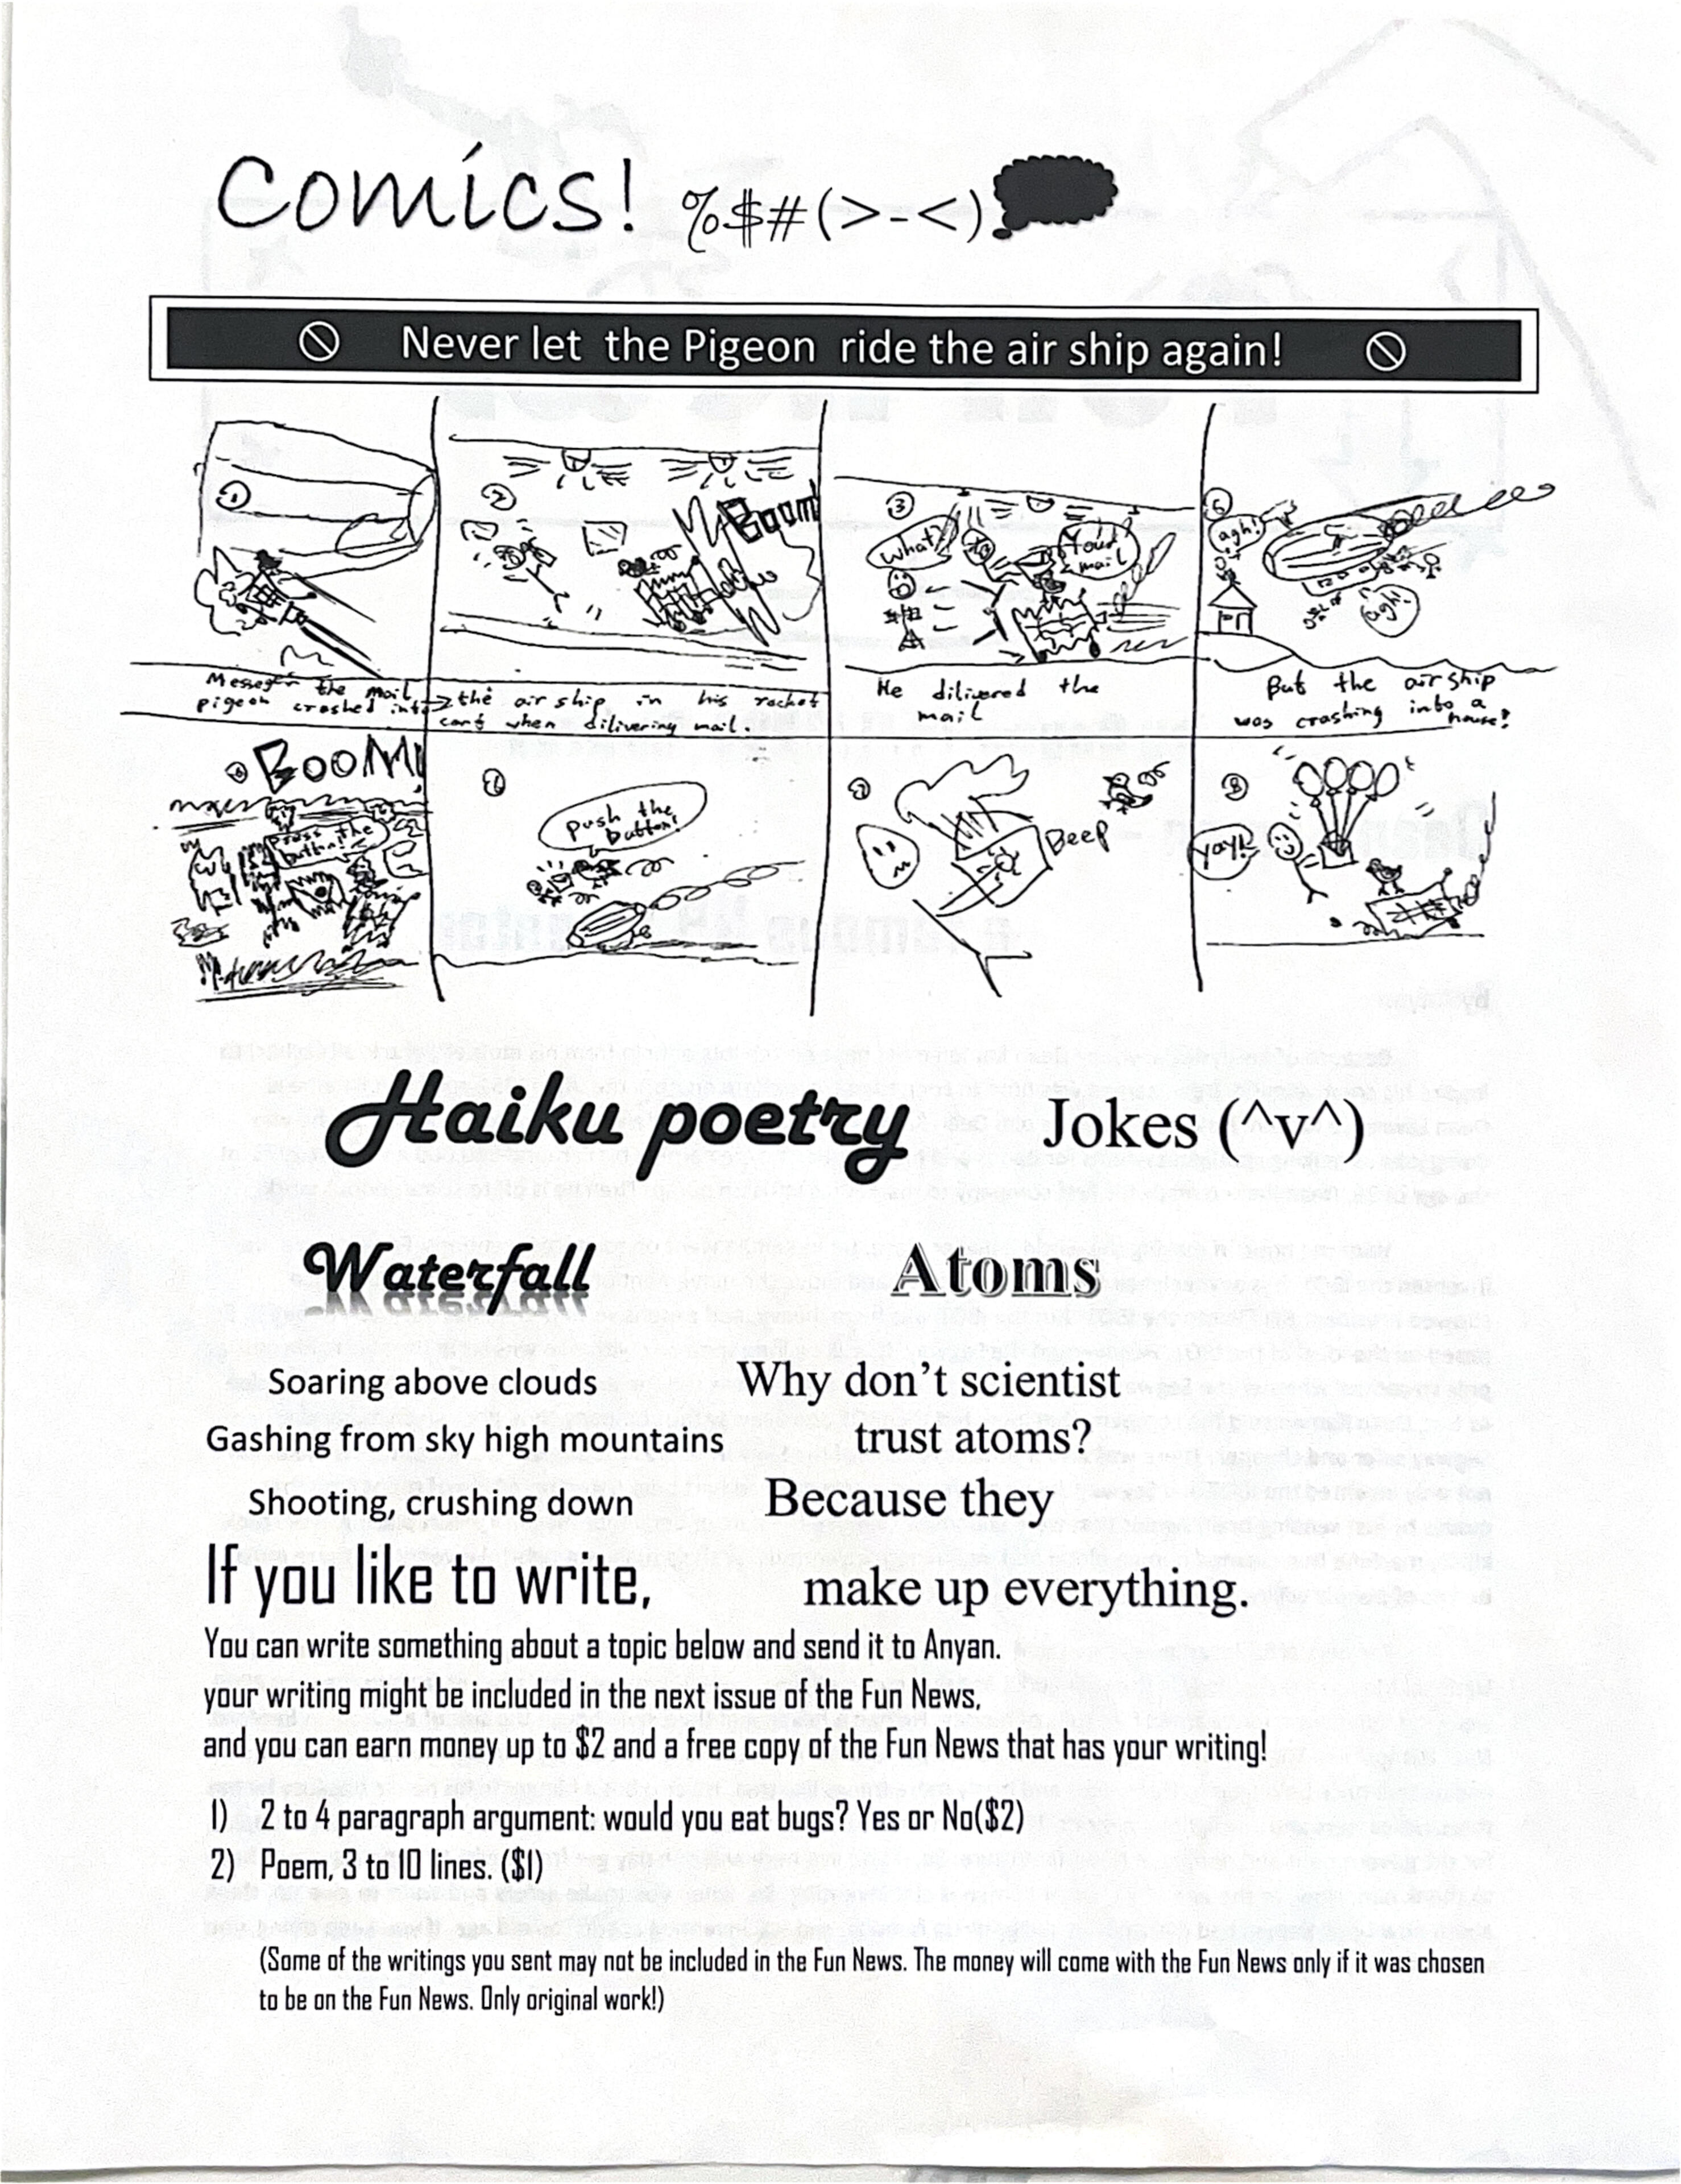 Comics! %$#(>-<)
Never let the Pigeon ride the air ship again!
1
2
Boom
3
What?
Your mail
agh!
agh!
Messeger the mail
pigeon crashed into
the air ship in his rocket
cart when dilivering mail.
He dilivered the
mail
But the air ship
was crashing into a
house!
BOOM!
press the
button!
push the
button!
7
Beep
8
yay!
Haiku poetry
Waterfall
Soaring above clouds
Gashing from sky high mountains
Shooting, crushing down
Jokes (^v^)
Atoms
Why don’t scientist
trust atoms?
Because they
make up everything.
If you like to write,
You can write something about a topic below and send it to Anyan.
your writing might be included in the next issue of the Fun News,
and you can earn money up to $2 and a free copy of the Fun News that has your writing!
1) 2 to 4 paragraph argument: would you eat bugs? Yes or No($2)
2) Poem, 3 to 10 lines. ($1)
(Some of the writings you sent may not be included in the Fun News. The money will come with the Fun News only if it was chosen
to be on the Fun News. Only original work!)